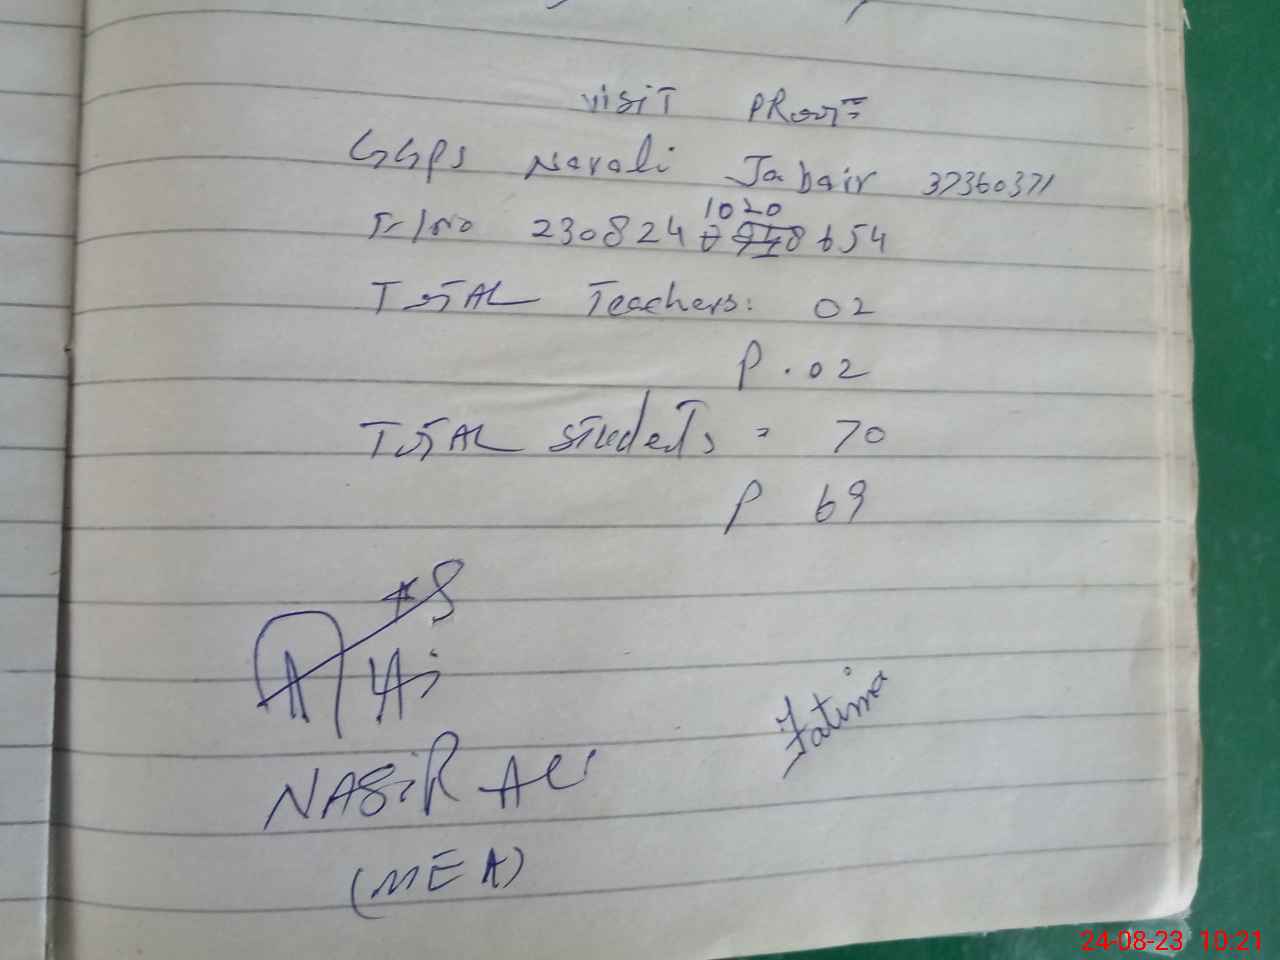 VISIT PROOF
GGPS Narali Jabair 37360371
F/No 230824 1020 654
TOTAL Teachers: 02
P . 02
TOTAL Students = 70
P 69
NASIR ALI
Fatima
(MEA)
24-08-23 10:21